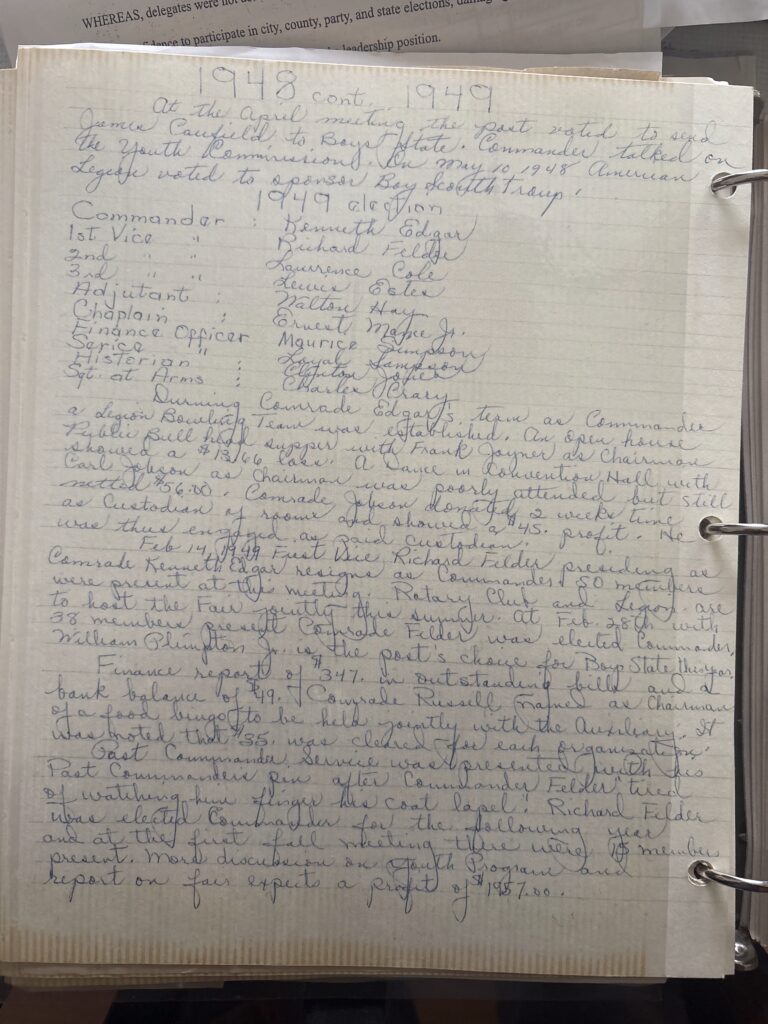 WHEREAS, delegates were not
to participate in city, county, party, and state elections,
leadership position.
1948 cont. 1949
At the April meeting the post voted to send
James Caufield to Boys State. Commander talked on
the Youth Commission. On May 10, 1948 American
Legion voted to sponsor Boy Scouth Troup.
1949 election
Commander : Kenneth Edgar
1st Vice " Richard Felder
2nd " " Lawrence Cole
3rd " " Lewis Estes
Adjutant : Walton Hay
Chaplain : Ernest Mayne Jr.
Finance Officer Maurice Simpson
Serice " Loyal Sampson
Historian : Clinton Jones
Sgt. at Arms : Charles Crary
Durning Comrade Edgar's term as Commander
a Legion Bowling Team was established. An open house
Public Bull head supper with Frank Joyner as Chairman
showed a $13.66 loss. A Dance in Convention Hall with
Carl Jobson as Chairman was poorly attended but still
netted $56.00. Comrade Jobson donated 2 weeks time
as Custodian of rooms and showed a $45. profit. He
was thus engaged as paid custodian.
Feb 14, 1949 First Vice Richard Felder presiding as
Comrade Kenneth Edgar resigns as Commander. 50 members
were present at this meeting. Rotary Club and Legion are
to host the Fair jointly this summer. At Feb. 28th with
38 members present Comrade Felder was elected Commander.
William Plimpton Jr. is the post's choice for Boys State this year.
Finance report of $347. in outstanding bills and a
bank balance of $49. Comrade Russell named as Chairman
of a food bingo to be held jointly with the Auxiliary. It
was noted that $35. was cleared for each organization.
Past Commander Service was presented with his
Past Commanders pin after Commander Felder "tired
of watching him finger his coat lapel". Richard Felder
was elected Commander for the following year
and at the first fall meeting there were 15 member
present. More discussion on Youth Program and
report on fair expects a profit of $1957.00.